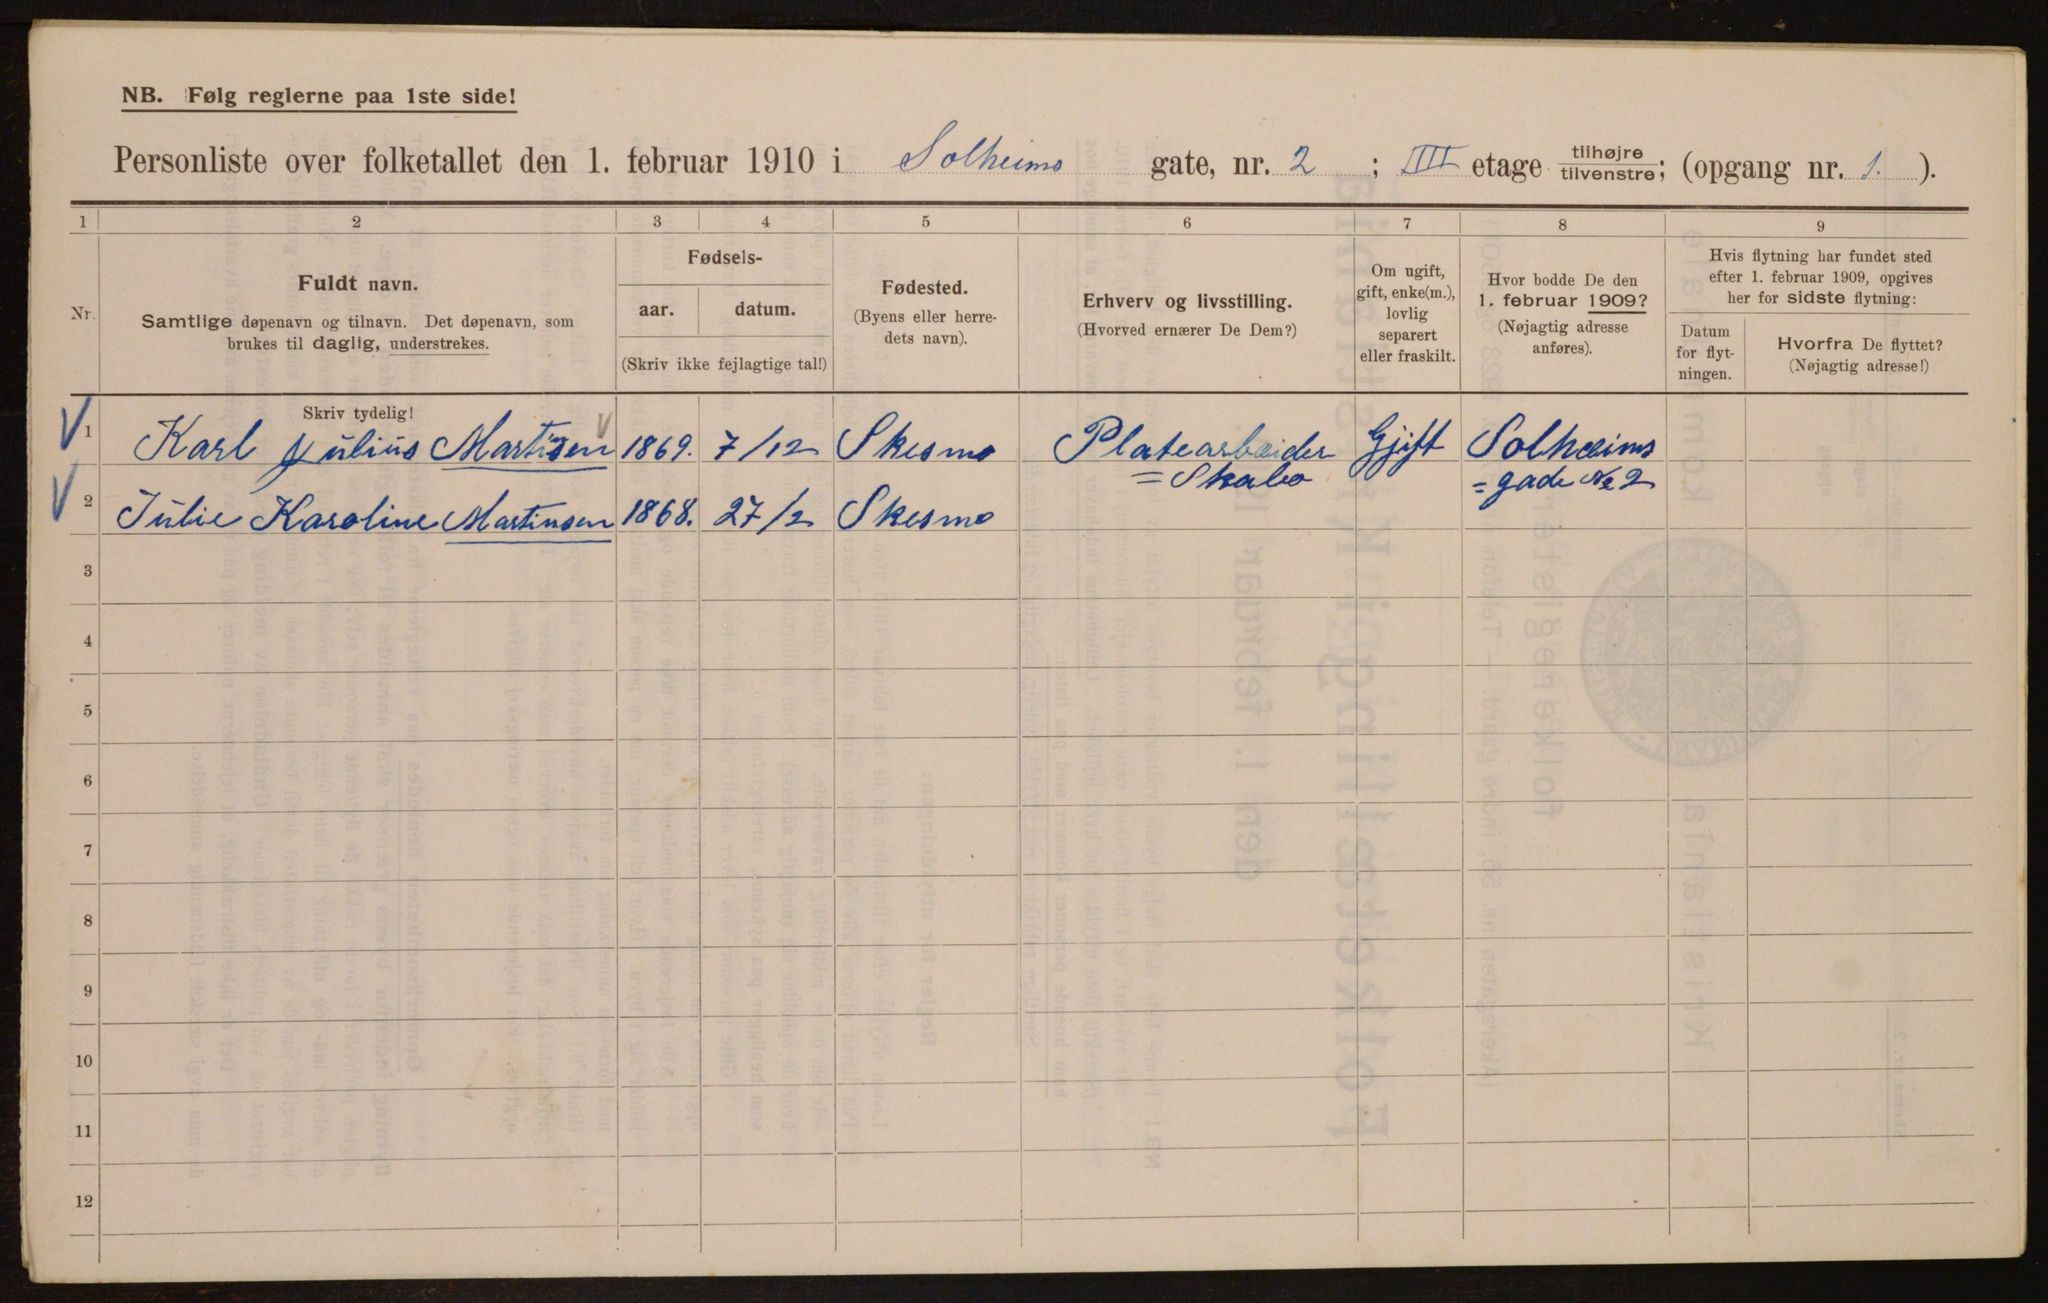 NB. Følg reglerne paa 1ste side!
Personliste over folketallet den 1. februar 1910 i Solheims gate, nr. 2 ; III etage tilhøjre/tilvenstre; (opgang nr. 1. ).
1 2 3 4 5 6 7 8 9
Nr.
Fuldt navn.
Samtlige døpenavn og tilnavn. Det døpenavn, som
brukes til daglig, understrekes.
Fødsels-
aar. datum.
(Skriv ikke fejlagtige tal!)
Fødested.
(Byens eller herre-
dets navn).
Erhverv og livsstilling.
(Hvorved ernærer De Dem?)
Om ugift,
gift, enke(m.),
lovlig
separert
eller fraskilt.
Hvor bodde De den
1. februar 1909?
(Nøjagtig adresse
anføres).
Hvis flytning har fundet sted
efter 1. februar 1909, opgives
her for sidste flytning:
Datum
for flyt-
ningen.
Hvorfra De flyttet?
(Nøjagtig adresse!)
Skriv tydelig!
1 Karl Julius Martinsen 1869. 7/12 Skesmo Platearbeider Gjift Solheims
= Skabo = gade No 2
2 Julie Karoline Martinsen 1868. 27/2 Skesmo
3
4
5
6
7
8
9
10
11
12